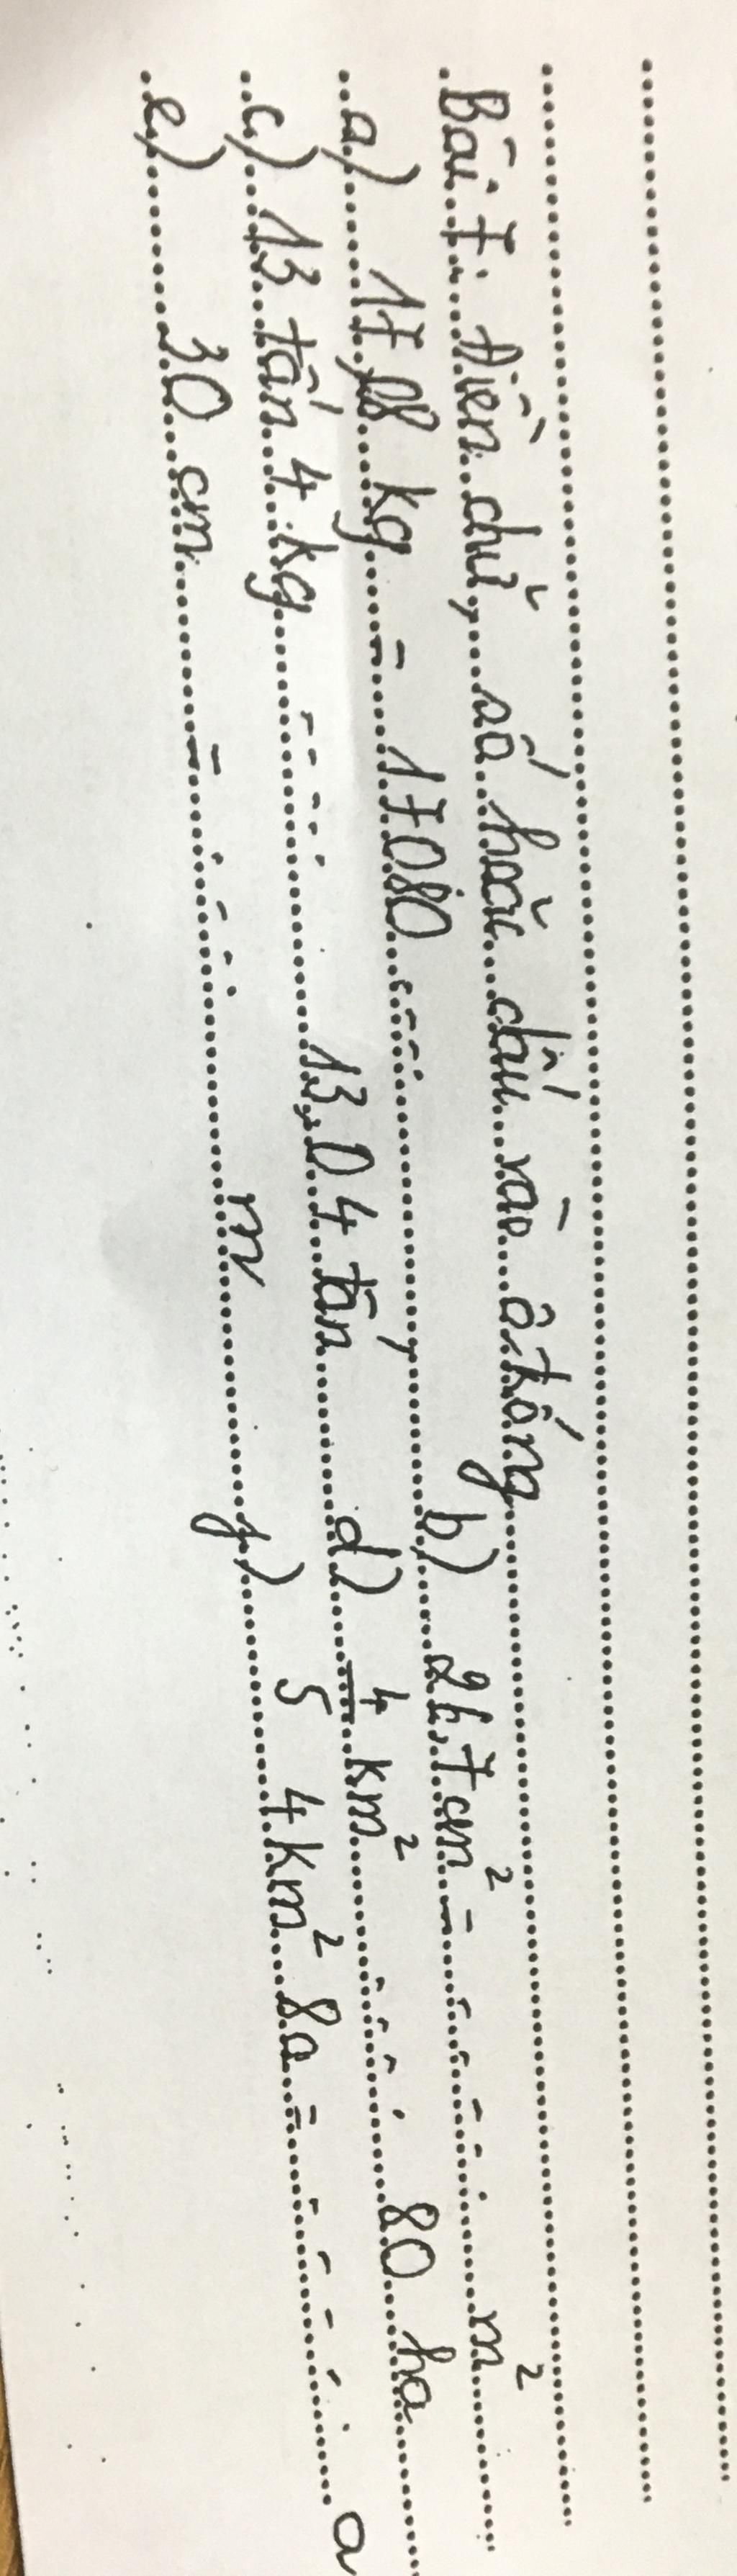 Bài 7: Điền chữ, số hoặc dấu vào ô trống
a) 17,08 kg = 17080 ........ b) 26,7 cm² = ........ m²
c) 13 tấn 4 kg ........ 13,04 tấn d) 4/5 km² ........ 80 ha
e) 30 cm = ........ m f) 4 km² 8a = ........ a